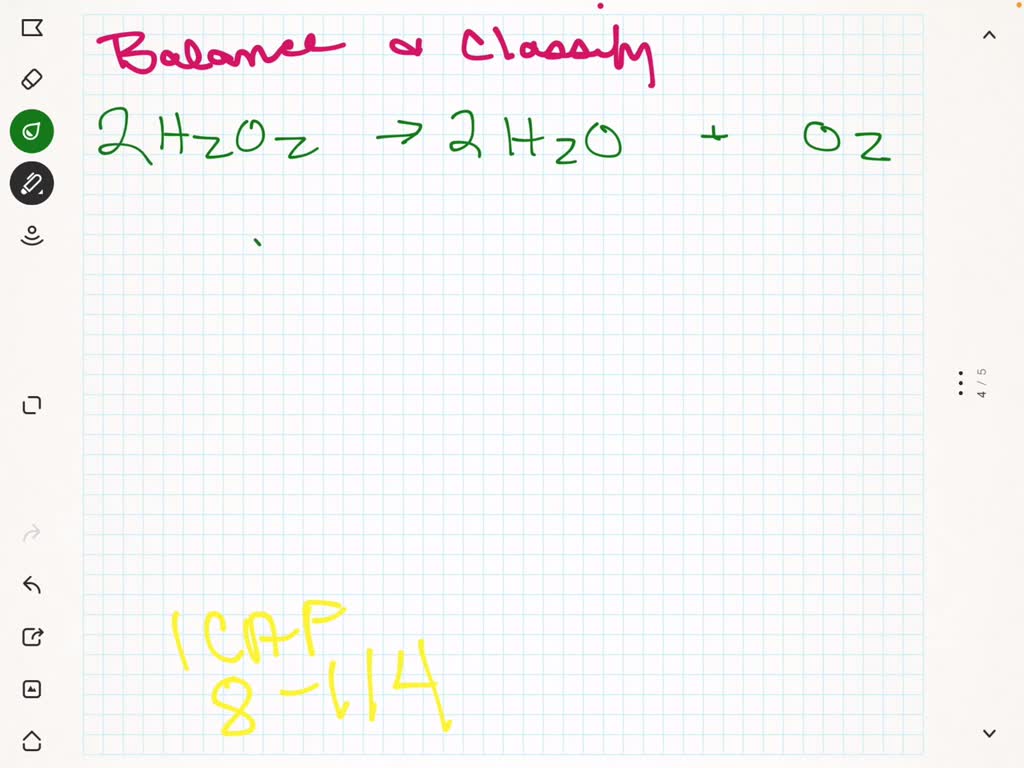 Balance & Classify
2H2O2 → 2H2O + O2
ICAP
4 / 5